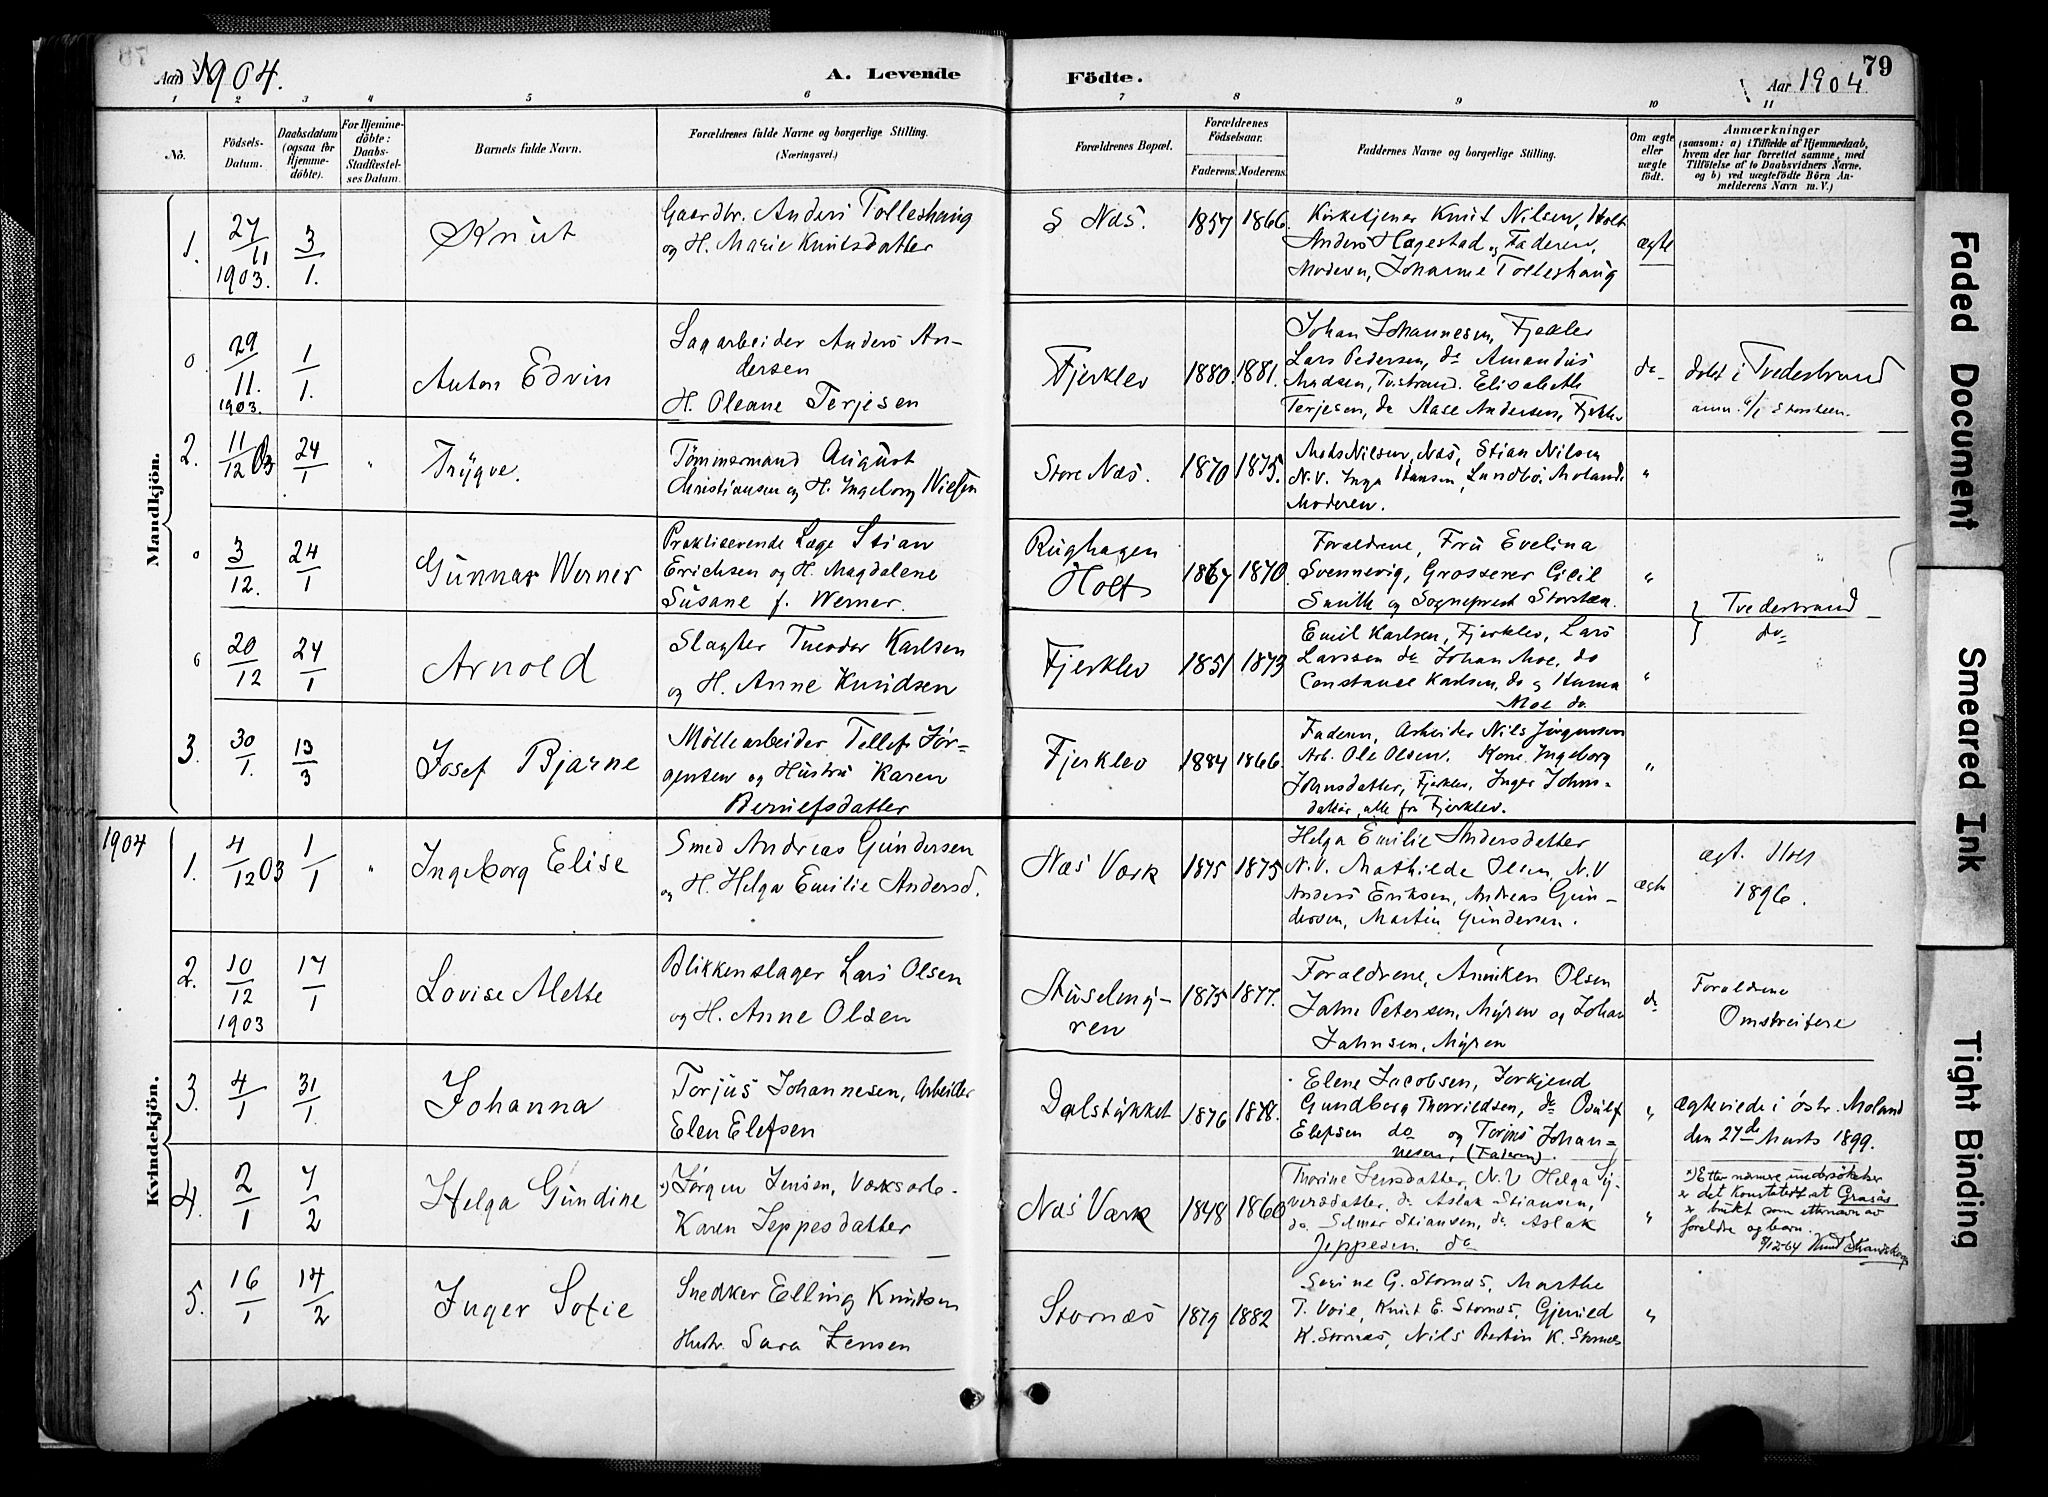 79
Aar 1904.
A. Levende Födte.
Aar 1904
1 2 3 4 5 6 7 8 9 10 11
No.
Födsels-Datum.
Daabsdatum (ogsaa for Hjemmedöbte).
For Hjemmedöbte: Daabs-Stadfæstelses Datum.
Barnets fulde Navn.
Forældrenes fulde Navne og borgerlige Stilling.
(Næringsvei.)
Forældrenes Bopæl.
Forældrenes Födselsaar.
Faderens. Moderens.
Faddernes Navne og borgerlige Stilling.
Om ægte eller uægte födt.
Anmærkninger
(saasom: a) i Tilfælde af Hjemmedaab, hvem der har forrettet samme, med Tilföielse af to Daabsvidners Navne, og b) ved uægtefödte Börn Anmelderens Navn m. V.)
Mandkjön.
1. 27/11 1903. 3/1. Knut
Gaardbr. Anders Tolleshaug
og H. Marie Knutsdatter
S Næs. 1857 1866.
Kirketjener Knut Nilsen, Holt
Anders Hagestad og Faderen,
Moderen, Johanne Tolleshaug
ægte
0 29/11. 1903. 1/1. Anton Edvin
Sagarbeider Anders An-
dersen
H. Oleane Terjesen
Fjerklev 1880. 1881.
Johan Johannesen, Fjerklev
Lars Pedersen, do Amandus
Madsen, Tvstrand. Elisabeth
Terjesen, do Aase Andersen, Fjerklev
do
döbt i Tvedestrand
anm. 6/1 Storsteen.
2. 11/12 03 24/1 " Trygve.
Tömmermand August
Christiansen og H. Ingeborg Nielsen
Store Næs. 1870 1875.
Mads Nilsen, Næs, Stian Nilsen
N.V. Inga Hansen, Lundbö, Moland.
Moderen.
"
0 3/12. 24/1 Gunnar Werner
Praktiserende Læge Stian
Erichsen og H. Magdalene
Susane f. Werner.
Rughagen
Holt 1867 1870.
Forældrene, Fru Evelina
Svennevig, Grosserer Cicil
Smith og Sogneprest Storsteen.
"
Tvedestrand
0 20/12 24/1 Arnold
Slagter Theodor Karlsen
og H. Anne Knudsen
Fjerklev 1851 1873
Emil Karlsen, Fjerklev, Lars
Larssen do Johan Moe, do
Constance Karlsen, do og Hanna
Moe do.
"
do
3. 30/1. 13/3 Josef Bjarne
Möllearbeider Tellef Jör-
gensen og Hustru Karen
Berulfsdatter
Fjerklev 1884 1866.
Faderen, Arbeider Nils Jörgensen
Arb. Ole Olsen. Kone Ingeborg
Johnsdatter, Fjerklev, Inger Johns-
datter, alle fra Fjerklev.
"
1904
Kvindekjön.
1. 4/12 03 1/1 " Ingeborg Elise
Smed Andreas Gundersen
og H. Helga Emilie Andersd.
Næs Værk 1875 1875
Helga Emilie Andersdatter
N.V. Mathilde Olsen, N.V
Anders Eriksen, Andreas Gun-
dersen, Martin Gundersen.
ægte
ægt. Holt
1896.
2. 10/12 1903 17/1 Lovise Mette
Blikkenslager Lars Olsen
og H. Anne Olsen
Stuselmy-
ren 1875 1877.
Forældrene, Anniken Olsen
Jahne Petersen, Myren og Johan
Jahnsen, Myren
do
Forældrene
Omstreifere
3. 4/1 31/1. Johanna
Torjus Johannesen, Arbeider
Elen Elefsen
Dalstykket 1876 1878.
Elene Jacobsen, Torkjend
Gundborg Thorvildsen, do Osulf
Elefsen do og Torjus Johan-
nesen, (Faderen).
"
ægteviede i östr. Moland
den 27de Marts 1899.
4. 2/1 7/2 Helga Gundine
*) Jörgen Jensen, Værksarb.
Karen Jeppesdatter
Næs Værk 1848 1860
Thorine Jensdatter, N.V Helga Sy-
versdatter, do Aslak Stiansen,
do. Selmer Stiansen, do Aslak
Jeppesen do
"
*) Etter nærmere undersökelser
er det konstatert at Grasås
er brukt som etternavn av
foreldre og barn.
5. 16/1 14/2 Inger Sofie
Snedker Elling Knutsen
Hustr. Sara Jensen
Stornæs 1879 1882
Serine G. Stornæs, Marthe
T. Voie, Knut E. Stornæs, Gjeruld
K. Stornæs, Nils Bertin K. Stornæs
"
Faded Document
Smeared Ink
Tight Binding